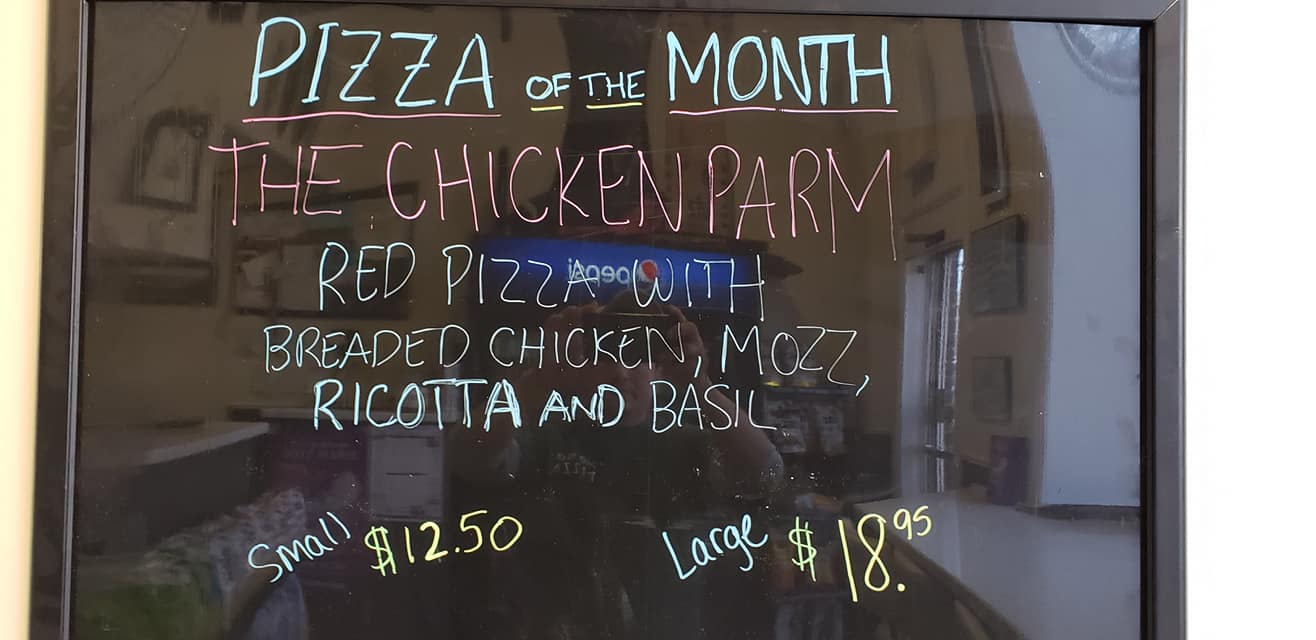 PIZZA OF THE MONTH
THE CHICKEN PARM
RED PIZZA WITH
BREADED CHICKEN, MOZZ,
RICOTTA AND BASIL
Small $12.50 Large $18.95
pepsi